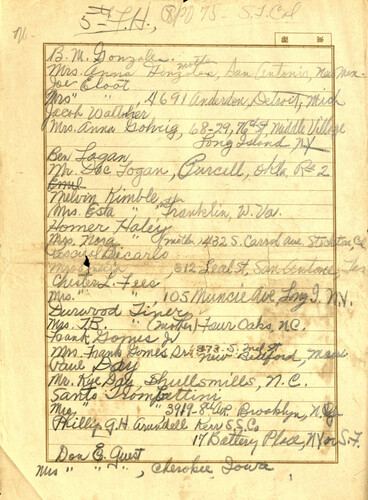 5TH I.H., BPO 75 - S.F. Cal
B. M. Gonzales
mother
Mrs. Anna Gonzales, San Antonio, New Mex.
Joe Eloot
Mrs " " , 4691 Anderdon, Detroit, Mich
Jacob Wallhier
Mrs. Anna Golwig, 68-29, 76th St, Middle Village
Long Island N.Y
Ben Logan
Mr. Doc Logan, Purcell, Okla. Rt 2
Melvin Kimble Jr.
Mrs. Esta " " Franklin, W. Va.
Homer Haley
Mrs. Nora " mother 1432 S. Carrol Ave. Stockton Cal
Decarlo
Mrs 812 Leal St, San Antonio, Tex
Chester L. Fees
Mrs. " " 105 Muncie Ave, Lng I. N.Y.
Durwood Tiner
Mrs. T.B. " (mother) Four Oaks, N.C.
Frank Gomes Jr
Mrs. Frank Gomes Sr. 873 S. 2nd St.
New Bedford, Mass
Paul Day
Mr. Kye Day, Shullsmills, N.C.
Santo Trombettiny
Mrs. " " 3919-8th Ave. Brooklyn, N.Y.
Phillip G.H. Arundell Kerr S.S. Co
17 Battery Place, N.Y or S.F.
Don E. Guest
Mrs " " " , Cherokee, Iowa